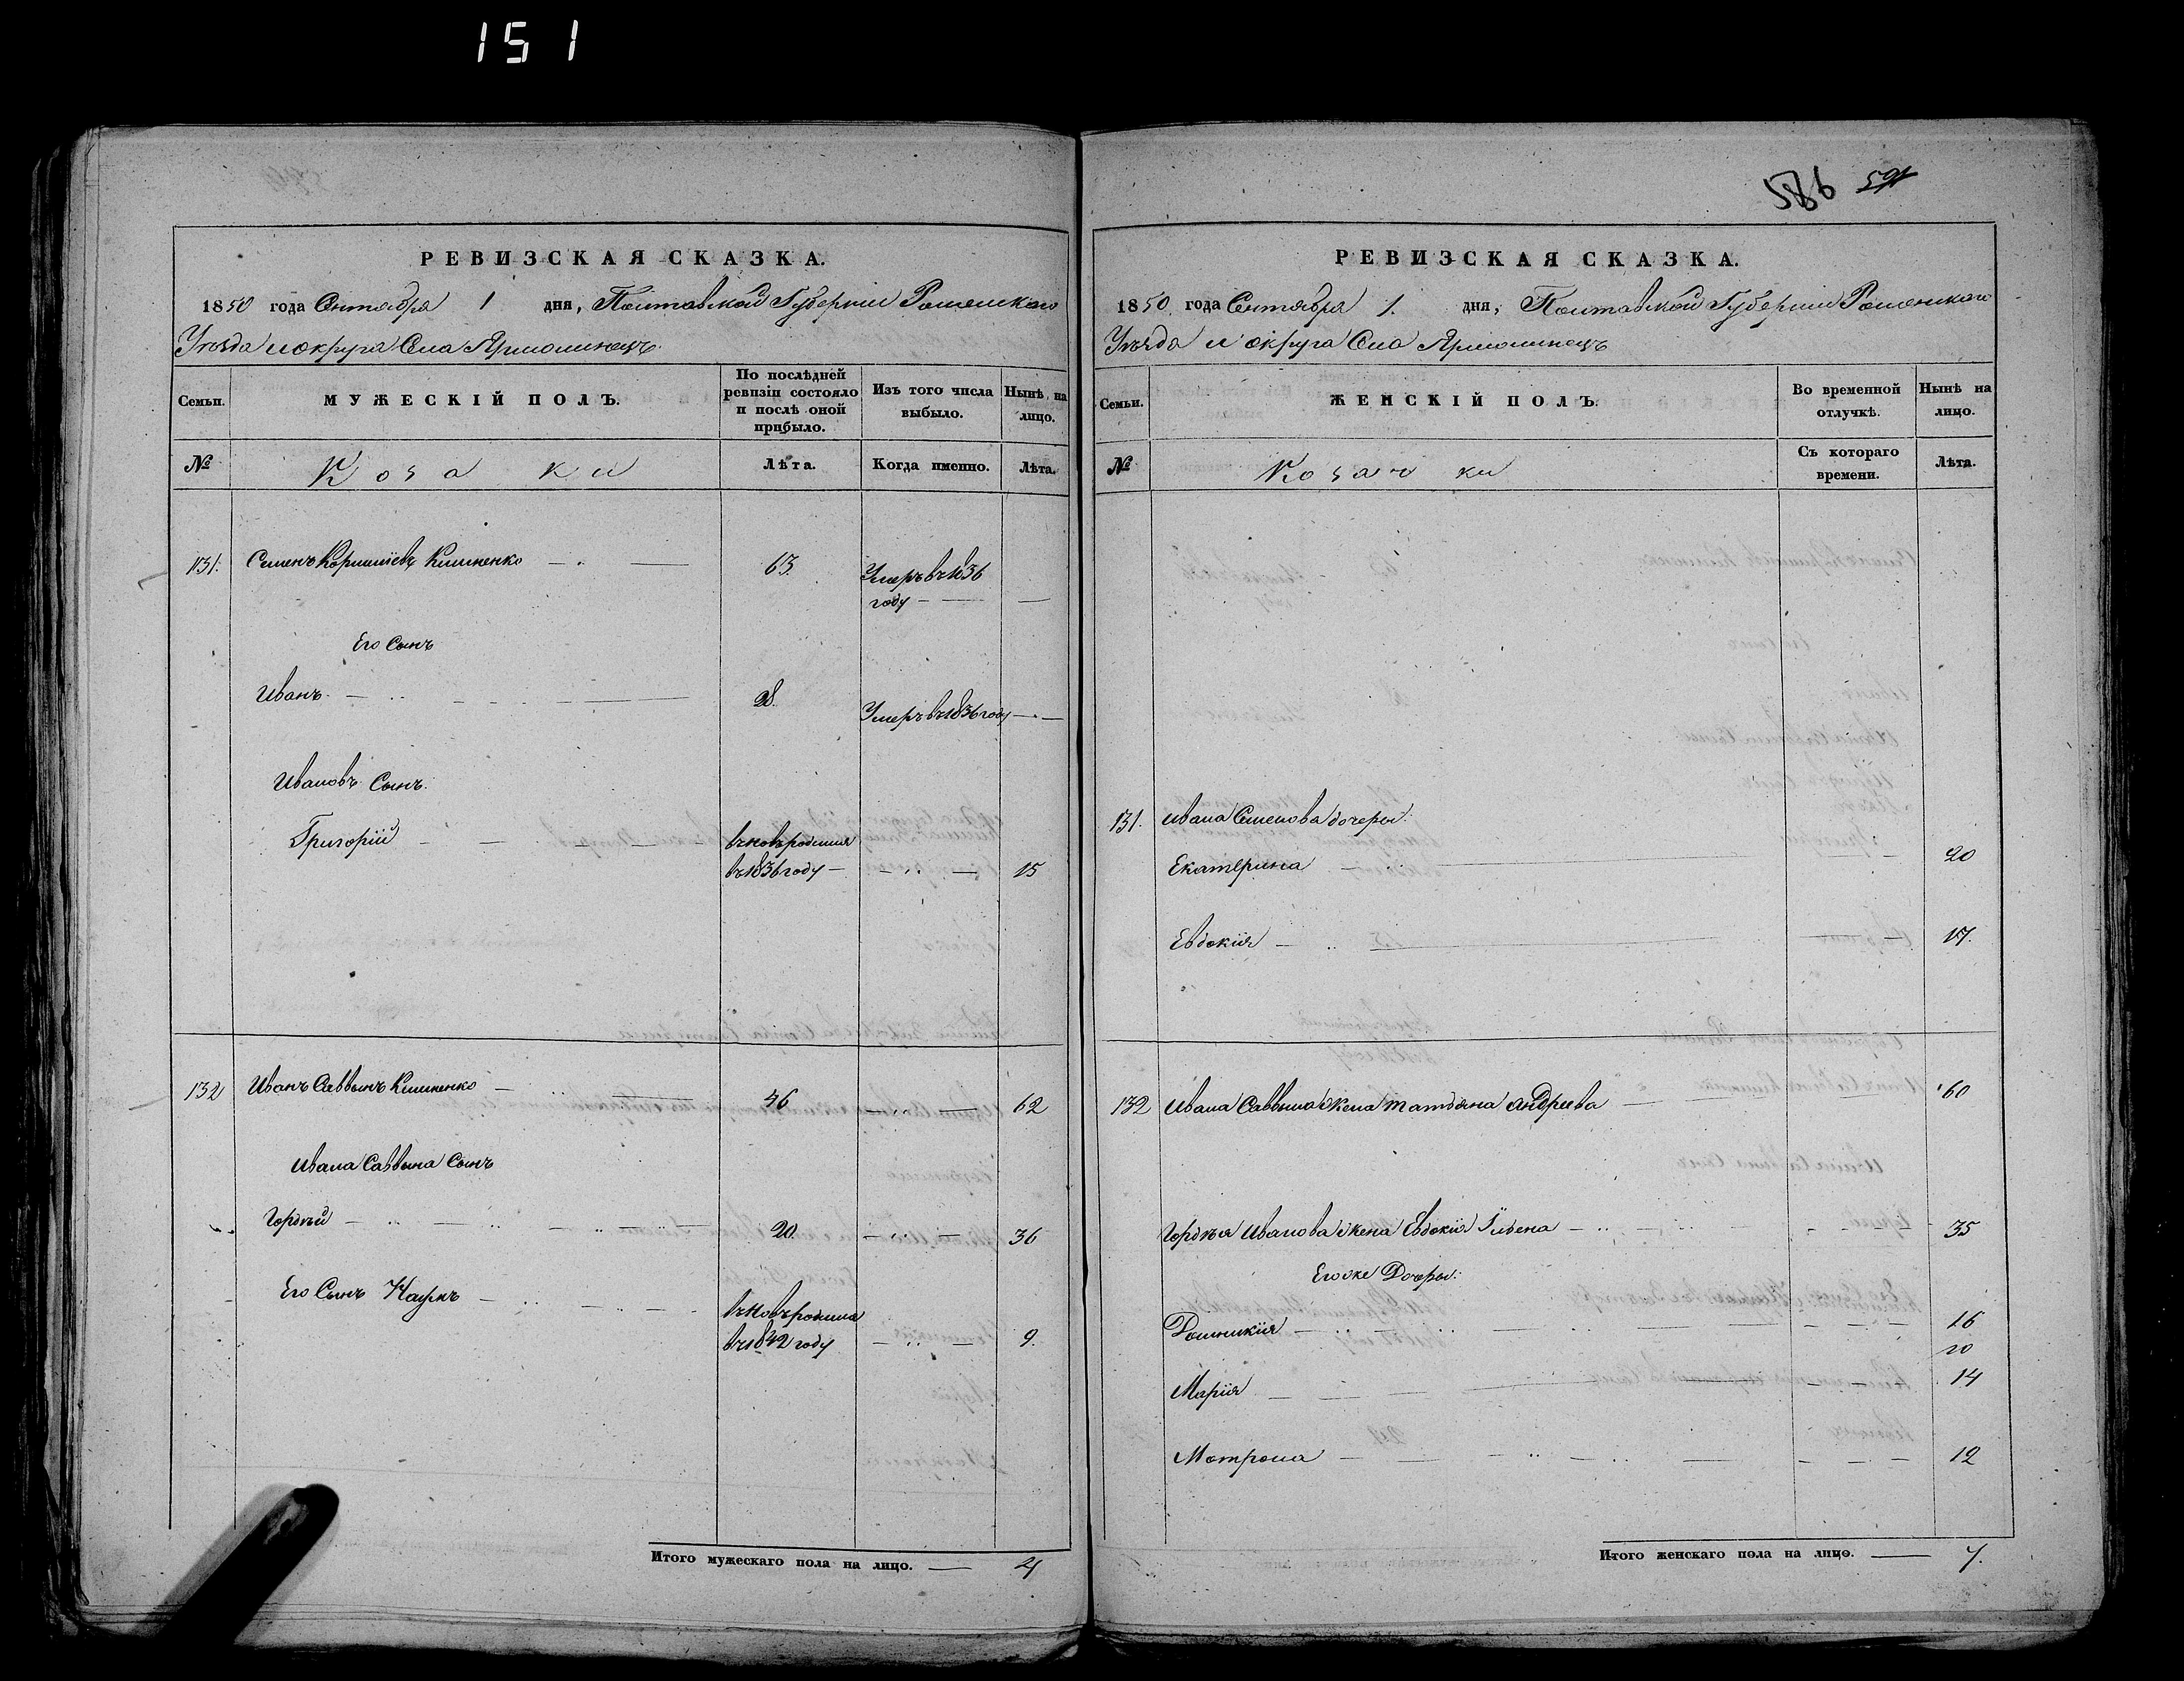 151
РЕВИЗСКАЯ СКАЗКА.
1850 года Сентября 1 дня, Полтавской Губернии Роменскаго
Уѣзда и округа Села Ярмолинецъ
Семьи.
МУЖЕСКІЙ ПОЛЪ.
По послѣдней ревизіи состояло и послѣ оной прибыло.
Изъ того числа выбыло.
Нынѣ на лицо.
№
Козаки
Лѣта.
Когда именно.
Лѣта.
131. Семенъ Корнѣевъ Клименко 63. Умеръ въ 1836
году
Его Сынъ
Иванъ 28. Умеръ въ 1836 году
Ивановъ Сынъ.
Григорій вновь родился
въ 1836 году 15
132 Иванъ Саввинъ Клименко 46 62
Ивана Саввина Сынъ
Гордѣй 20. 36
Его Сынъ Наумъ вновь родился
въ 1842 году 9.
Итого мужескаго пола на лицо. 4
586 591
РЕВИЗСКАЯ СКАЗКА.
1850 года Сентября 1. дня, Полтавской Губернии Роменскаго
Уѣзда и округа Села Ярмолинецъ
Семьи.
ЖЕНСКІЙ ПОЛЪ.
Во временной отлучкѣ.
Нынѣ на лицо.
№
Козачки
Съ котораго времени.
Лѣта.
131. Ивана Семенова дочери:
Екатерина 20
Евдокия 17.
132 Ивана Саввина жена Татьяна Андреева 60
Гордѣя Иванова жена Евдокия 35
Его же Дочери:
Домникия 16
10
Мария 14
Мотрона 12
Итого женскаго пола на лицо. 7.